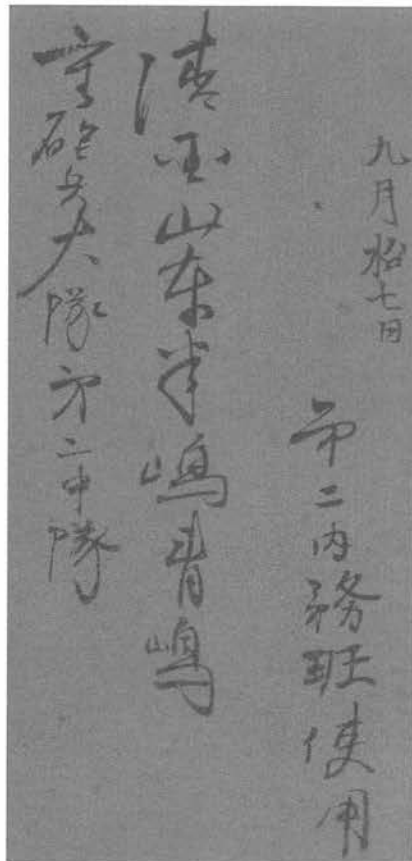 九月拾七日
第二内務班使用
清国山東半嶋青嶋
重砲兵大隊第二中隊